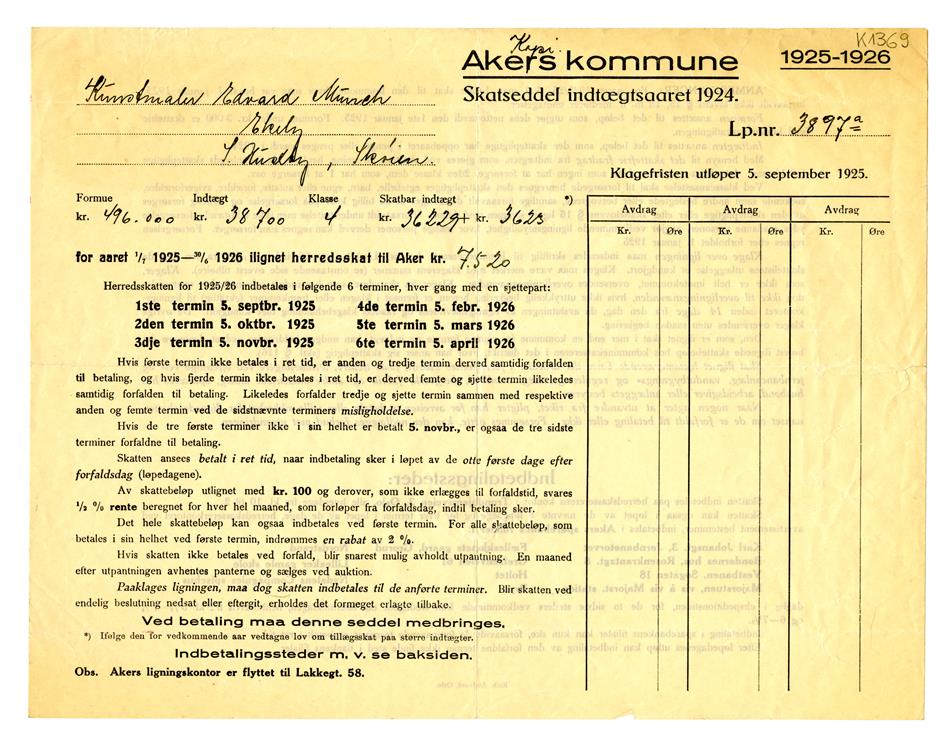 K1369
Kopi.
Akers kommune
1925-1926
Kunstmaler Edvard Munch
Skatseddel indtægtsaaret 1924.
Ekely
Lp.nr. 3897a
S. Huseby, Skøien.
Klagefristen utløper 5. september 1925.
Formue Indtægt Klasse Skatbar indtægt *)
kr. 496.000 kr. 38700 4 kr. 36229 + kr. 3623
Avdrag Avdrag Avdrag
Kr. Øre Kr. Øre Kr. Øre
for aaret 1/7 1925—30/6 1926 ilignet herredsskat til Aker kr. 7520
Herredsskatten for 1925/26 indbetales i følgende 6 terminer, hver gang med en sjettepart:
1ste termin 5. septbr. 1925 4de termin 5. febr. 1926
2den termin 5. oktbr. 1925 5te termin 5. mars 1926
3dje termin 5. novbr. 1925 6te termin 5. april 1926
Hvis første termin ikke betales i ret tid, er anden og tredje termin derved samtidig forfalden
til betaling, og hvis fjerde termin ikke betales i ret tid, er derved femte og sjette termin likeledes
samtidig forfalden til betaling. Likeledes forfalder tredje og sjette termin sammen med respektive
anden og femte termin ved de sidstnævnte terminers misligholdelse.
Hvis de tre første terminer ikke i sin helhet er betalt 5. novbr., er ogsaa de tre sidste
terminer forfaldne til betaling.
Skatten ansees betalt i ret tid, naar indbetaling sker i løpet av de otte første dage efter
forfaldsdag (løpedagene).
Av skattebeløp utlignet med kr. 100 og derover, som ikke erlægges til forfaldstid, svares
1/2 % rente beregnet for hver hel maaned, som forløper fra forfaldsdag, indtil betaling sker.
Det hele skattebeløp kan ogsaa indbetales ved første termin. For alle skattebeløp, som
betales i sin helhet ved første termin, indrømmes en rabat av 2 %.
Hvis skatten ikke betales ved forfald, blir snarest mulig avholdt utpantning. En maaned
efter utpantningen avhentes panterne og sælges ved auktion.
Paaklages ligningen, maa dog skatten indbetales til de anførte terminer. Blir skatten ved
endelig beslutning nedsat eller eftergit, erholdes det formeget erlagte tilbake.
Ved betaling maa denne seddel medbringes.
*) Ifølge den for vedkommende aar vedtagne lov om tillægsskat paa større indtægter.
Indbetalingssteder m. v. se baksiden.
Obs. Akers ligningskontor er flyttet til Lakkegt. 58.